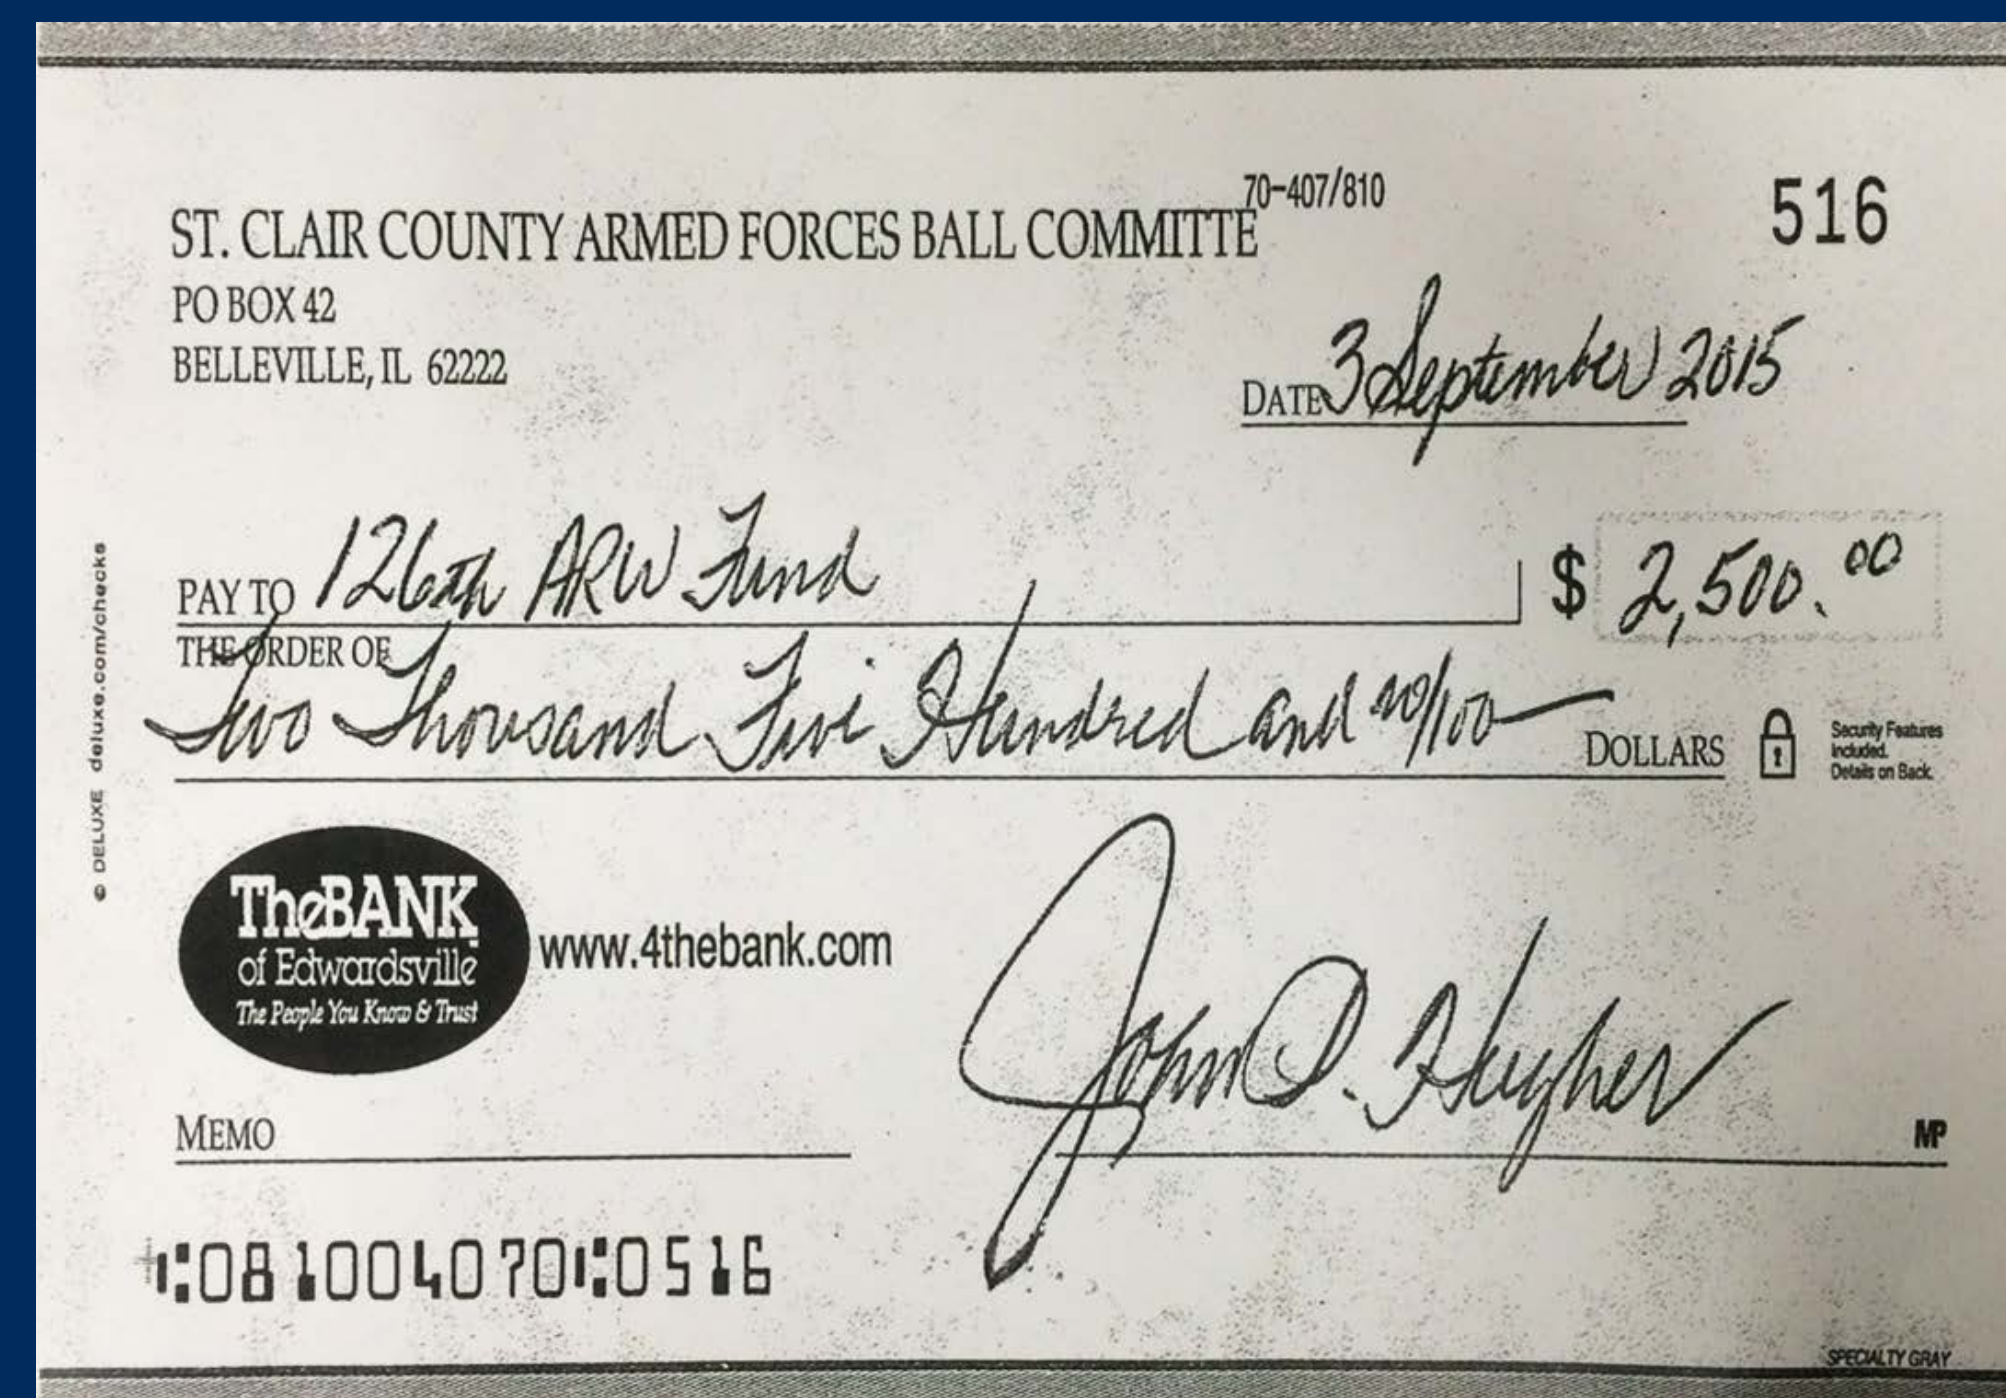 70-407/810
516
ST. CLAIR COUNTY ARMED FORCES BALL COMMITTE
PO BOX 42
BELLEVILLE, IL 62222
DATE 3 September 2015
PAY TO 126th ARW Fund
THE ORDER OF
$ 2,500.00
Two Thousand Five Hundred and no/100
DOLLARS
Security Features
Included.
Details on Back.
© DELUXE deluxe.com/checks
TheBANK
of Edwardsville
The People You Know & Trust
www.4thebank.com
John D. Hughes
MEMO
MP
⑆081004070⑆0516
SPECIALTY GRAY